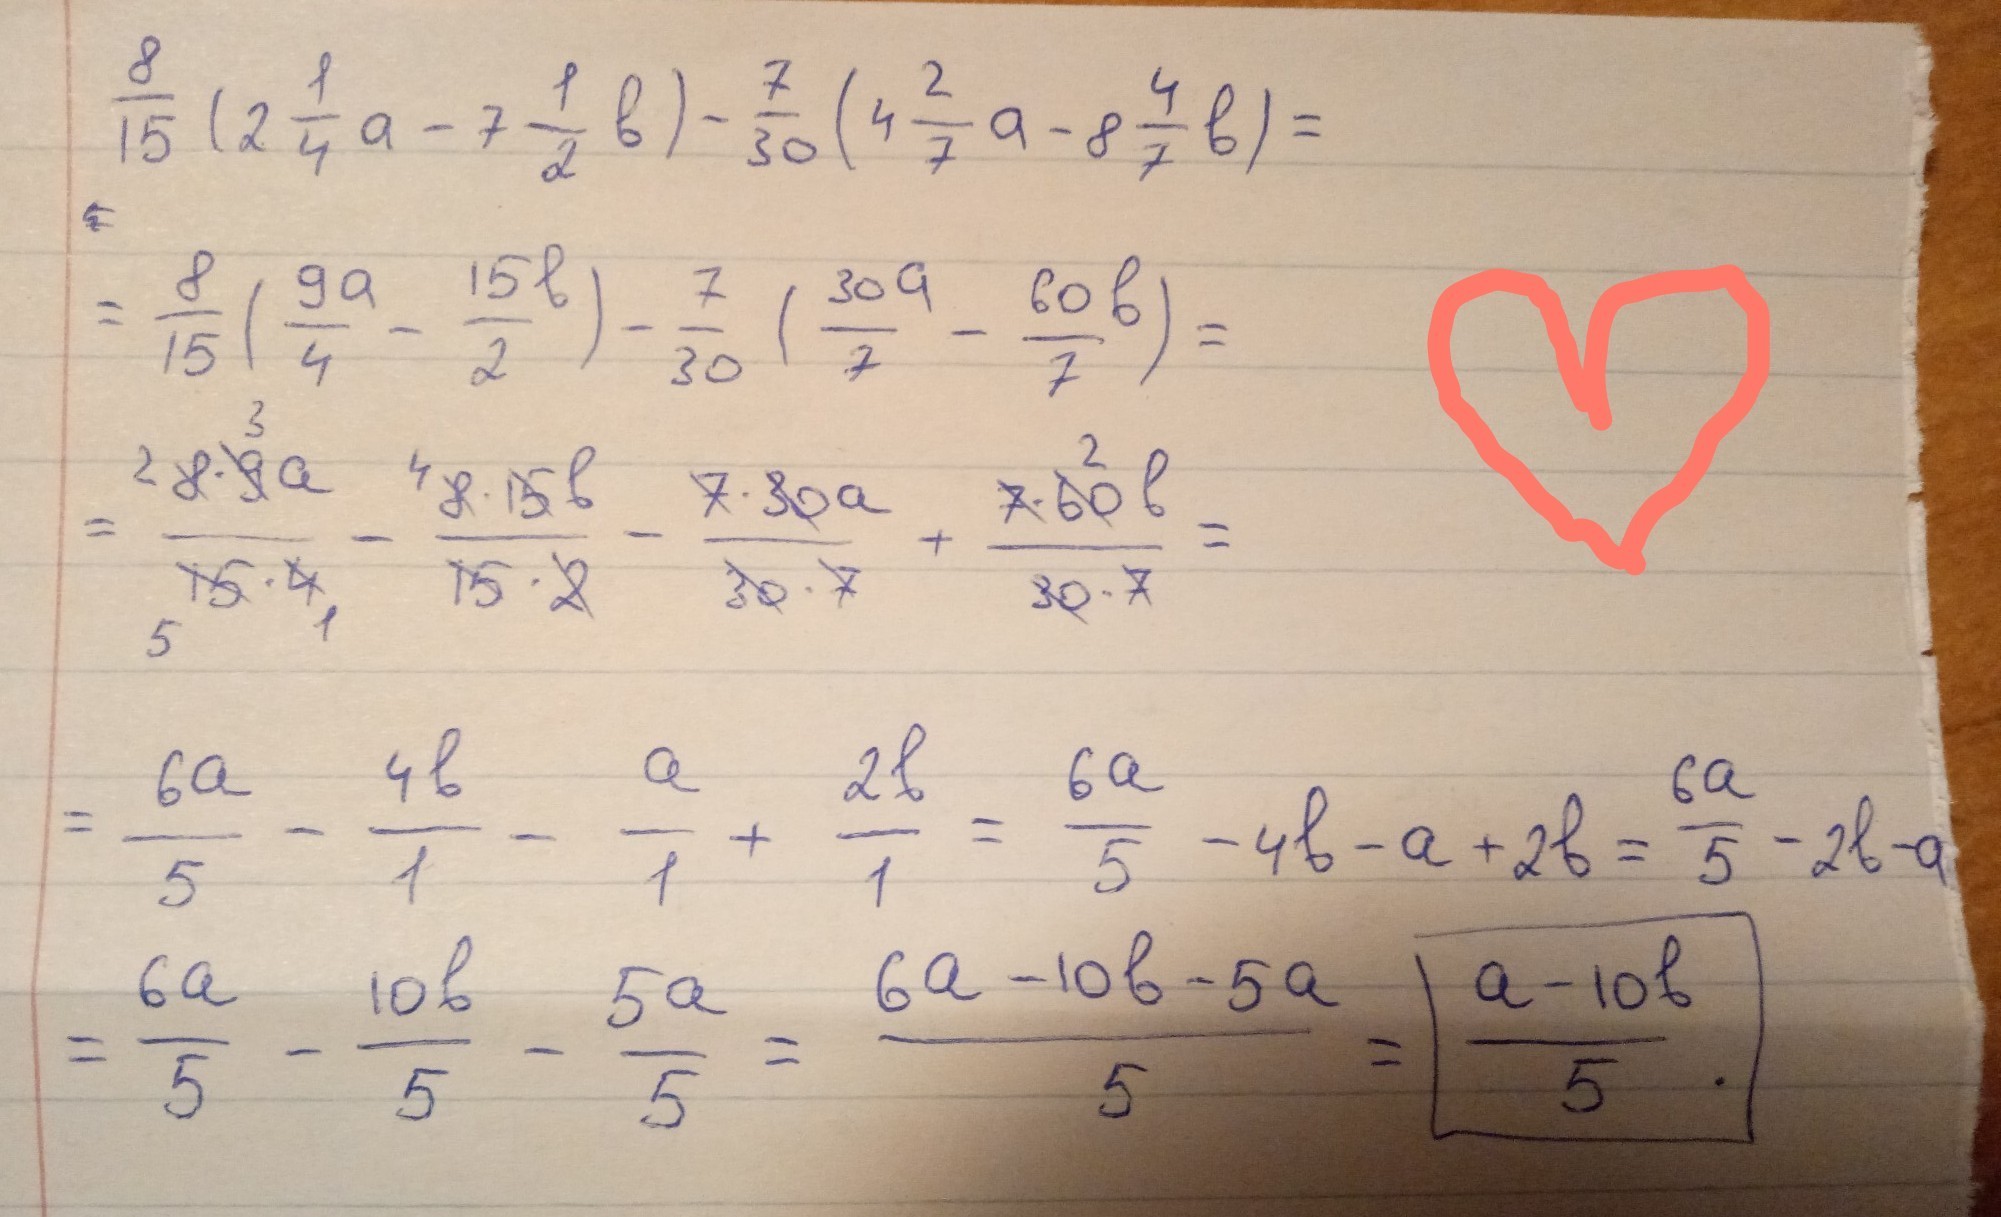 8/15 (2 1/4 a - 7 1/2 b) - 7/30 (4 2/7 a - 8 4/7 b) =
=
= 8/15 (9a/4 - 15b/2) - 7/30 (30a/7 - 60b/7) =
2 3 4 2
= 8·9a/15·4 - 8·15b/15·2 - 7·30a/30·7 + 7·60b/30·7 =
5 1
= 6a/5 - 4b/1 - a/1 + 2b/1 = 6a/5 - 4b - a + 2b = 6a/5 - 2b - a
= 6a/5 - 10b/5 - 5a/5 = (6a - 10b - 5a)/5 = (a - 10b)/5 .